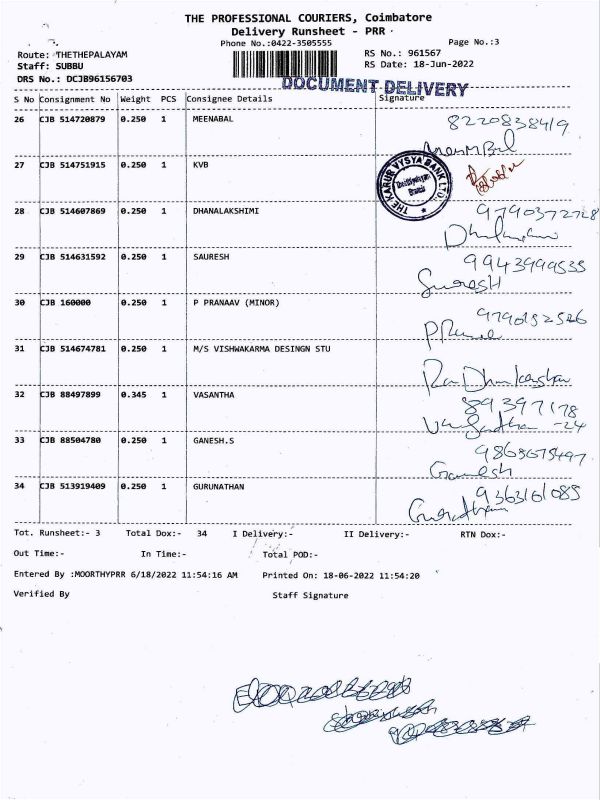 THE PROFESSIONAL COURIERS, Coimbatore
Delivery Runsheet - PRR
Phone No.:0422-3505555
Page No.:3
Route: THETHEPALAYAM
RS No.: 961567
Staff: SUBBU
RS Date: 18-Jun-2022
DRS No.: DCJB96156703
DOCUMENT DELIVERY
S No Consignment No Weight PCS Consignee Details Signature
26 CJB 514720879 0.250 1 MEENABAL
8220838419
27 CJB 514751915 0.250 1 KVB
THE KARUR VYSYA BANK LTD.
Thethipalayam
Branch
28 CJB 514607869 0.250 1 DHANALAKSHIMI
9790372728
29 CJB 514631592 0.250 1 SAURESH
9943999535
SureSH
30 CJB 160000 0.250 1 P PRANAAV (MINOR)
31 CJB 514674781 0.250 1 M/S VISHWAKARMA DESINGN STU
32 CJB 88497899 0.345 1 VASANTHA
89397178
-24
33 CJB 88504780 0.250 1 GANESH.S
Ganesh
34 CJB 513919409 0.250 1 GURUNATHAN
9363161085
Tot. Runsheet:- 3 Total Dox:- 34 I Delivery:- II Delivery:- RTN Dox:-
Out Time:- In Time:- Total POD:-
Entered By :MOORTHYPRR 6/18/2022 11:54:16 AM Printed On: 18-06-2022 11:54:20
Verified By Staff Signature